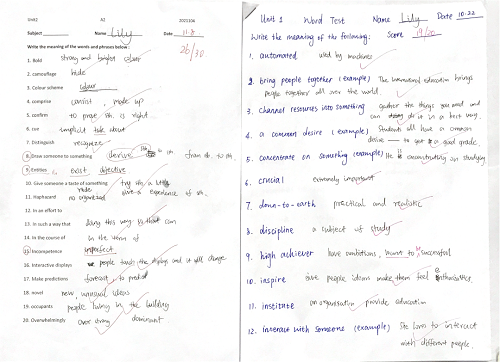 Unit2 A2 2021104
Subject Name Lily Date 11.8
26/30
Write the meaning of the words and phrases below:
1. Bold strong and bright colour
2. camouflage hide
3. Colour scheme colour
4. comprise consist, made up
5. confirm to prove sth is right
6. cue implicit
7. Distinguish recognize
8. Draw someone to something derive sth from sth. to sth.
9. Entities exist objective
10. Give someone a taste of something try sth a little
give a experience of sth.
11. Haphazard no organized
12. In an effort to
13. In such a way that using this way so that can
14. In the course of in the term of
15. Incompetence imperfect
16. Interactive displays people touch the displays and it will change
17. Make predictions forecast to predict
18. novel new, unusual ideas
19. occupants people living in the building
20. Overwhelmingly over strong dominant
Unit 1 Word Test Name Lily Date 10.22
Write the meaning of the following: Score 19/20
1. automated used by machines
2. bring people together (example) The international education brings
people together all over the world
3. channel resources into something gather the things you need and
can do it in a best way.
4. a common desire (example) Students all have a common
desire — to get a good grade.
5. concentrate on something (example) He is concentrating on studying
6. crucial extremely important
7. down-to-earth practical and realistic
8. discipline a subject of study
9. high achiever have ambitions, want to be successful
10. inspire give people ideas make them feel enthusiastic
11. institute an organisation provide education
12. interact with someone (example) She love to interact
with different people.